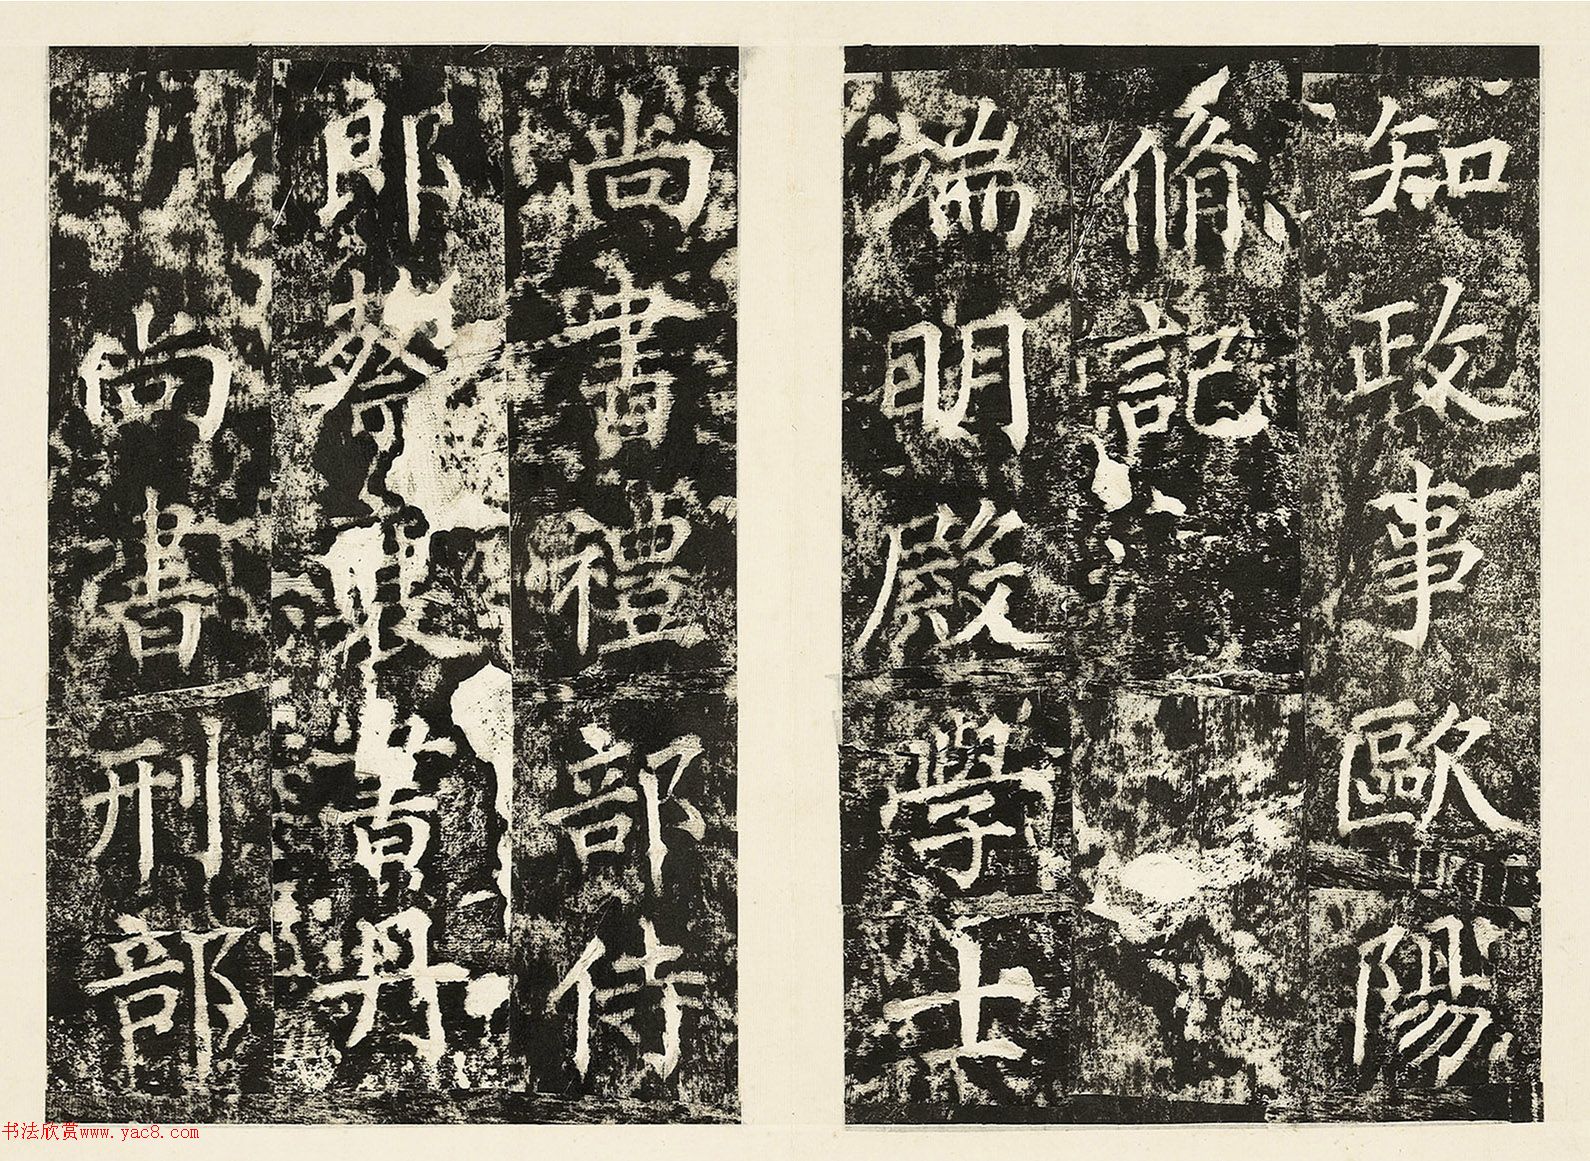 知政事歐陽
脩記
端明殿學士
尚書禮部侍
郎蔡襄書丹
尚書刑部
书法欣赏www.yac8.com